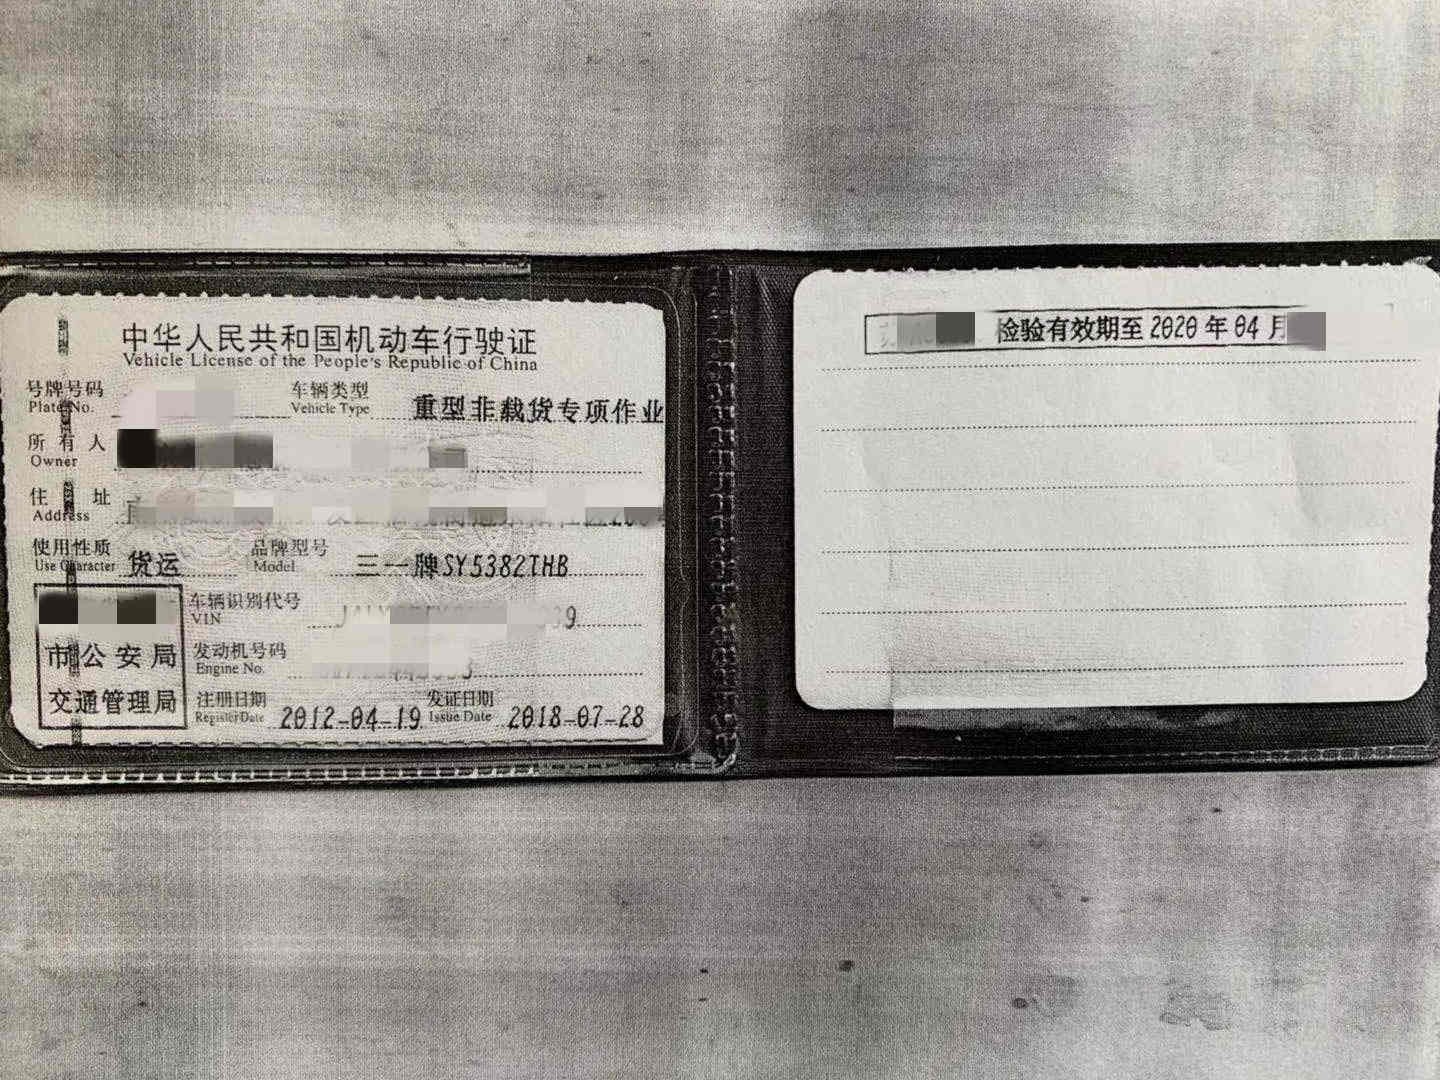 中华人民共和国机动车行驶证
Vehicle License of the People's Republic of China
号牌号码
Plate No.
车辆类型
Vehicle Type
重型非载货专项作业
所有人
Owner
住址
Address
使用性质
Use Character
货运
品牌型号
Model
三一牌SY5382THB
市公安局
交通管理局
车辆识别代号
VIN
发动机号码
Engine No.
注册日期
Register Date
2012-04-19
发证日期
Issue Date
2018-07-28
检验有效期至2020年04月